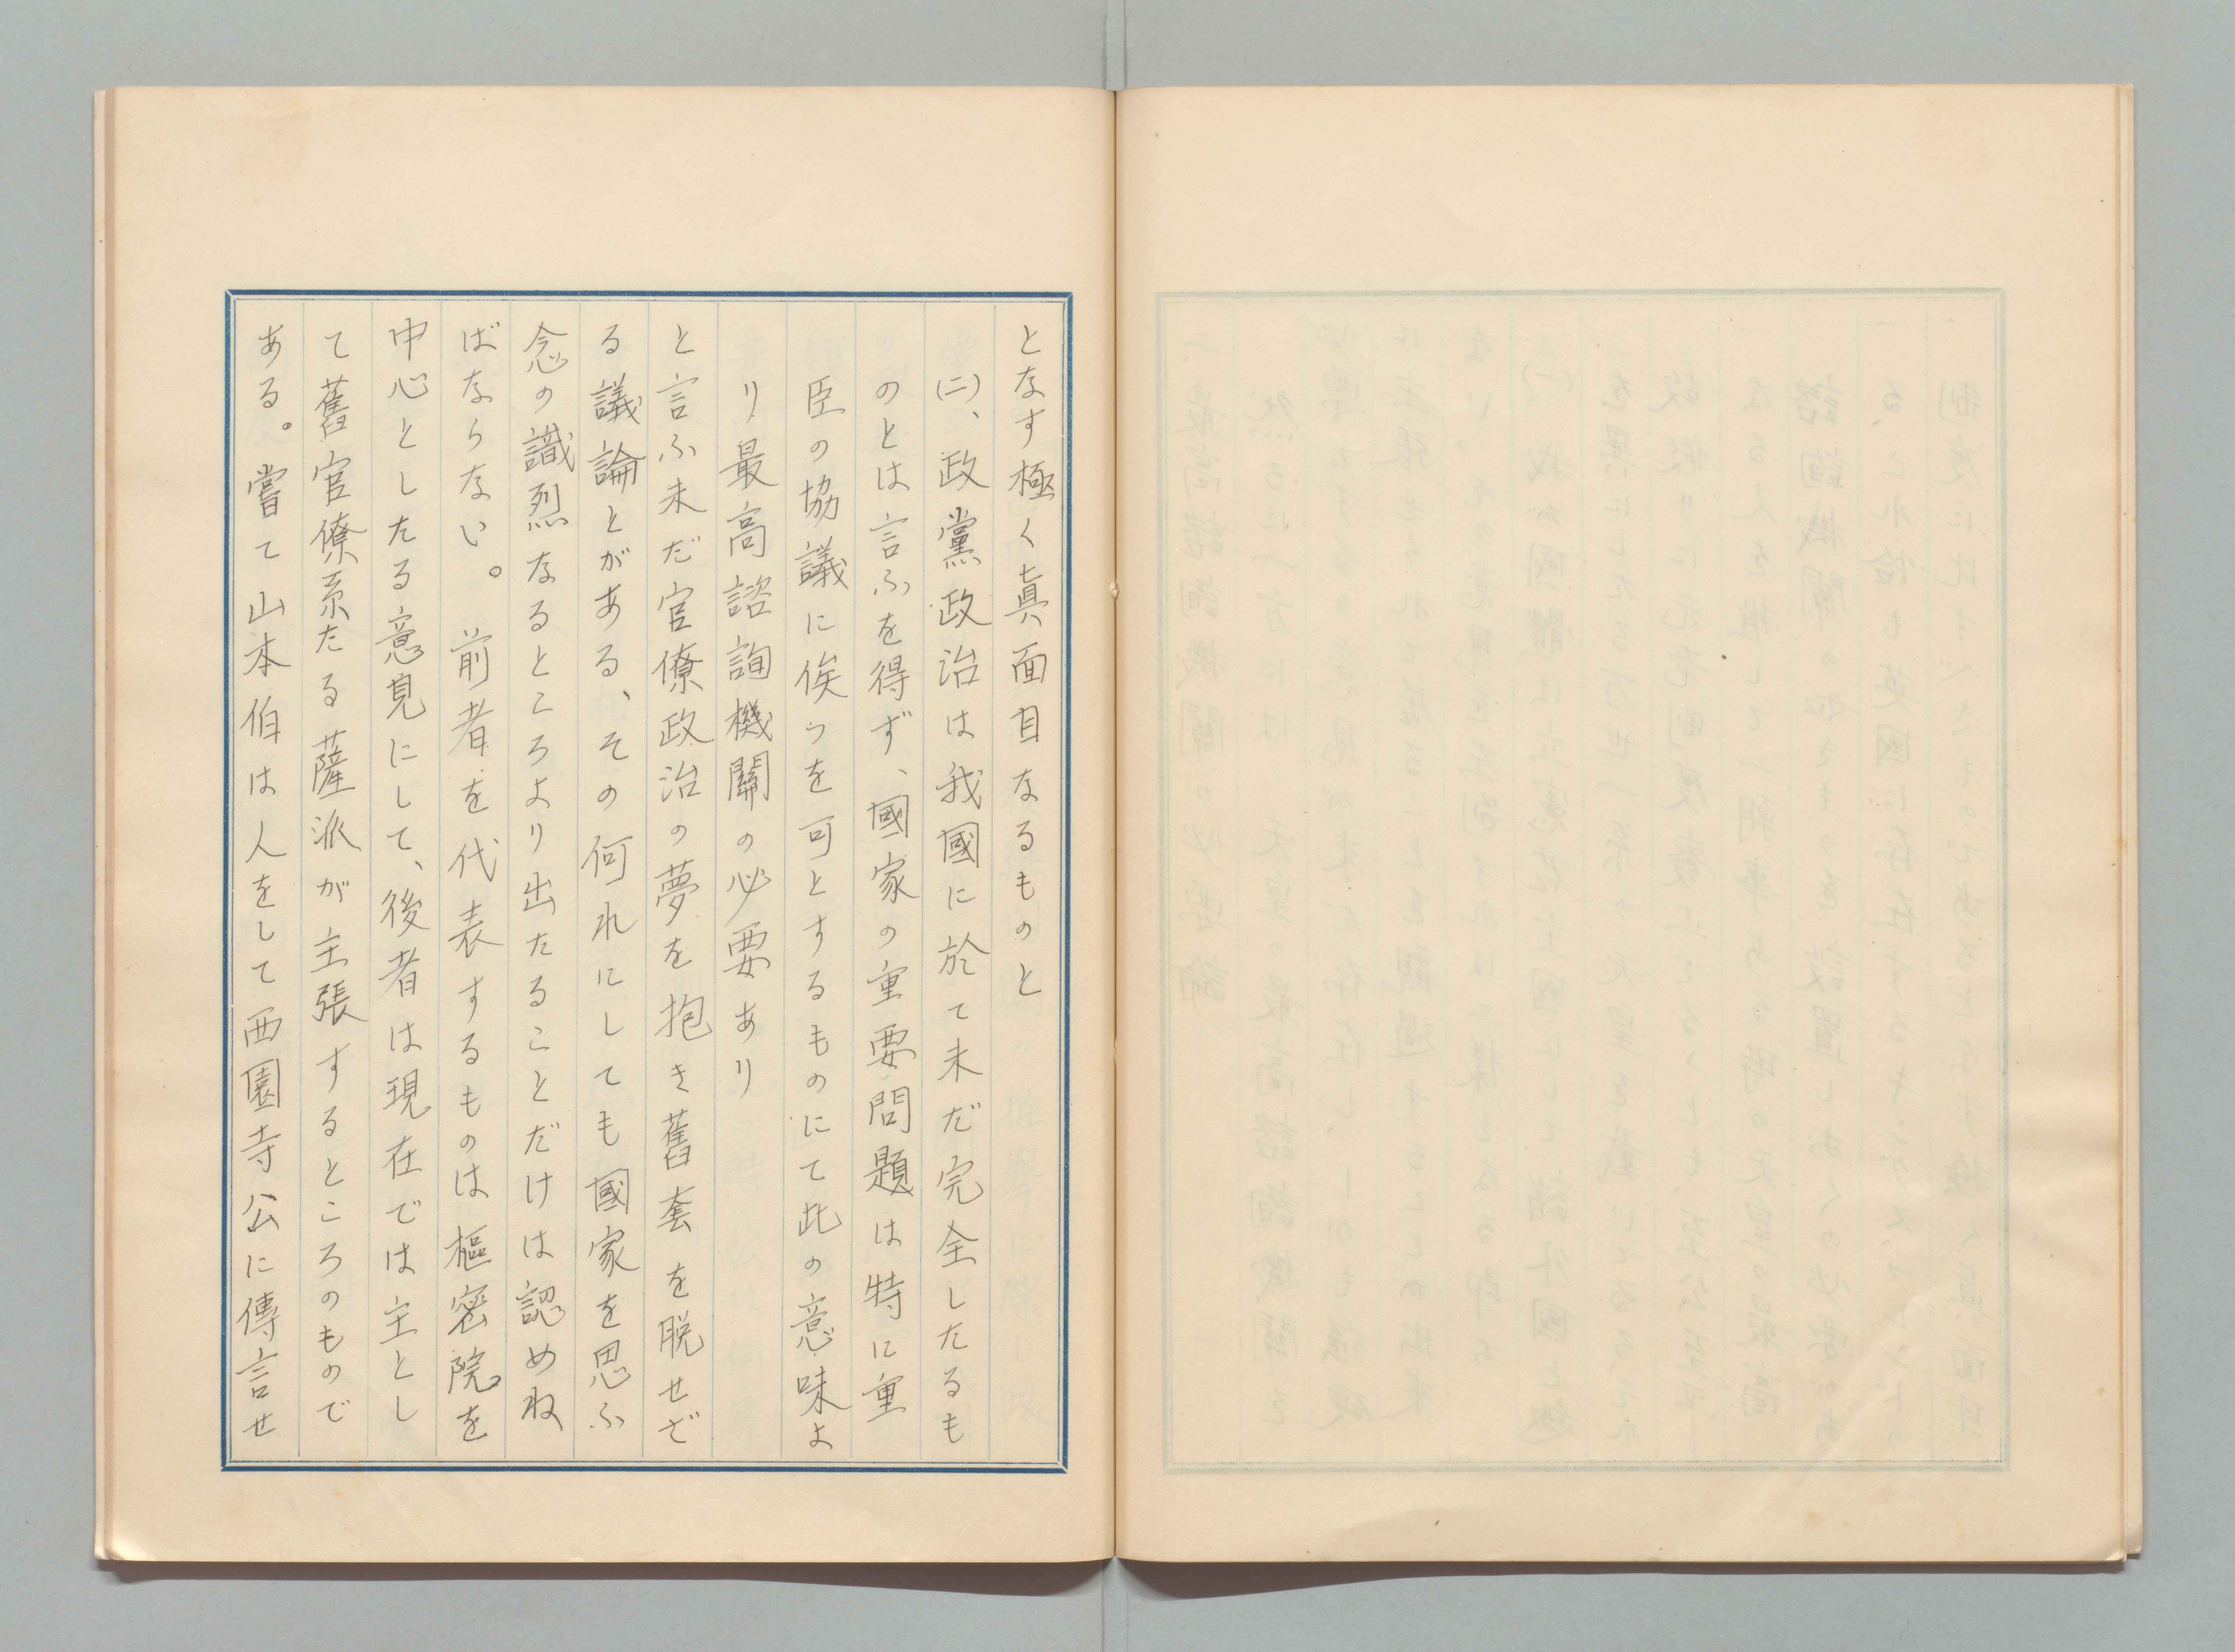 となす極く真面目なるものと
(二)、政黨政治は我國に於て未だ完全したるも
のとは言ふを得ず、國家の重要問題は特に重
臣の協議に俟つを可とするものにて此の意味よ
り最高諮詢機關の必要あり
と言ふ未だ官僚政治の夢を抱き舊套を脱せざ
る議論とがある、その何れにしても國家を思ふ
念の識烈なるところより出たることだけは認めね
ばならない。前者を代表するものは樞密院を
中心としたる意見にして、後者は現在では主とし
て舊官僚系たる薩派が主張するところのもので
ある。嘗て山本伯は人をして西園寺公に傳言せ